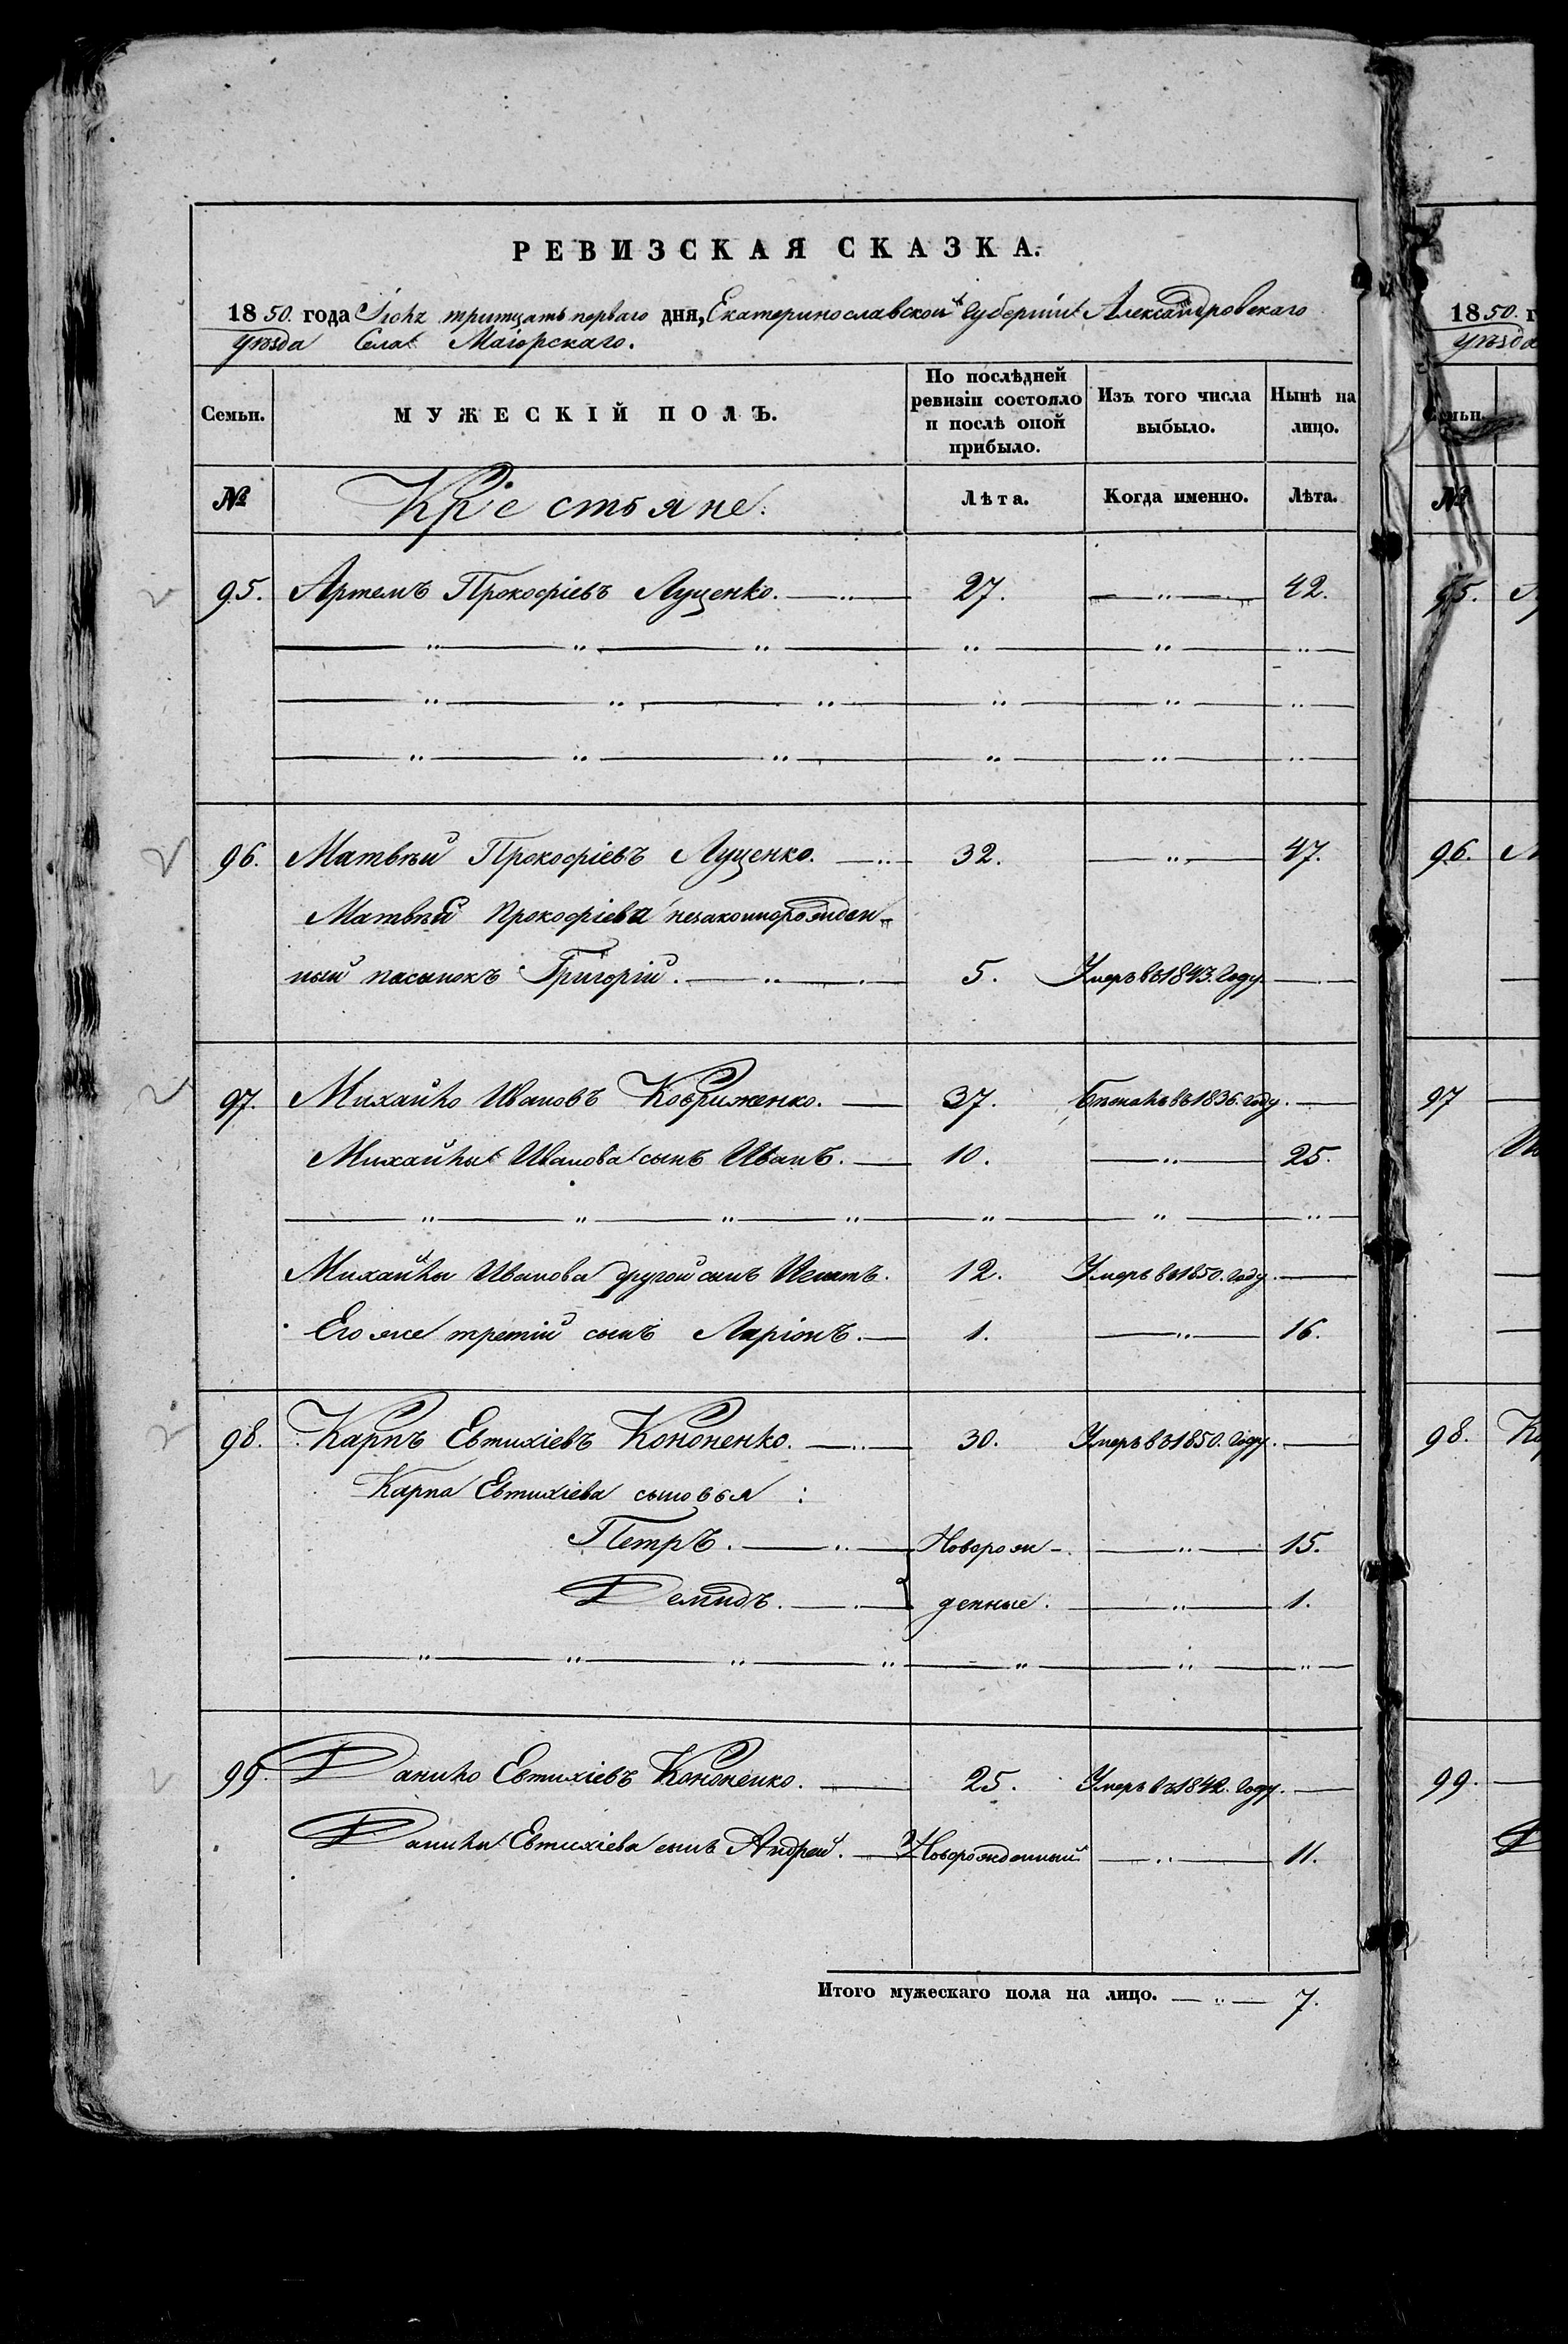 РЕВИЗСКАЯ СКАЗКА.
1850. года Іюля тритцать перваго дня, Екатеринославской Губерніи Александровскаго
уѣзда Села Маіорскаго.
Семьи. МУЖЕСКІЙ ПОЛЪ. По послѣдней ревизіи состояло и послѣ оной прибыло. Изъ того числа выбыло. Нынѣ на лицо.
№ Крiестьяне. Лѣта. Когда именно. Лѣта.
95. Артемъ Прокофіевъ Луценко. 27. 42.
96. Матвѣй Прокофіевъ Луценко. 32. 47.
Матвѣя Прокофіева незаконнорожден-
ный пасынокъ Григорій. 5. Умеръ в 1843. Году.
97. Михайло Ивановъ Ковриженко. 37. Бѣжалъ в 1836. году.
Михайлы Иванова сынъ Иванъ. 10. 25.
Михайлы Иванова другой сынъ Игнатъ. 12. Умеръ в 1850. Году.
Его же третій сынъ Ларіонъ. 1. 16.
98. Карпъ Евтихіевъ Кононенко. 30. Умеръ в 1850. Году.
Карпа Евтихіева сыновья:
Петръ. Новорож- 15.
Демидъ. денные. 1.
99. Данило Евтихіевъ Кононенко. 25. Умеръ въ 1842. Году.
Данилы Евтихіева сынъ Андрей. Новорожденный 11.
Итого мужескаго пола на лицо. 7.
1850. г
уѣзда
Семьи.
№
95.
96. М
97
98. Ка
99.
Д